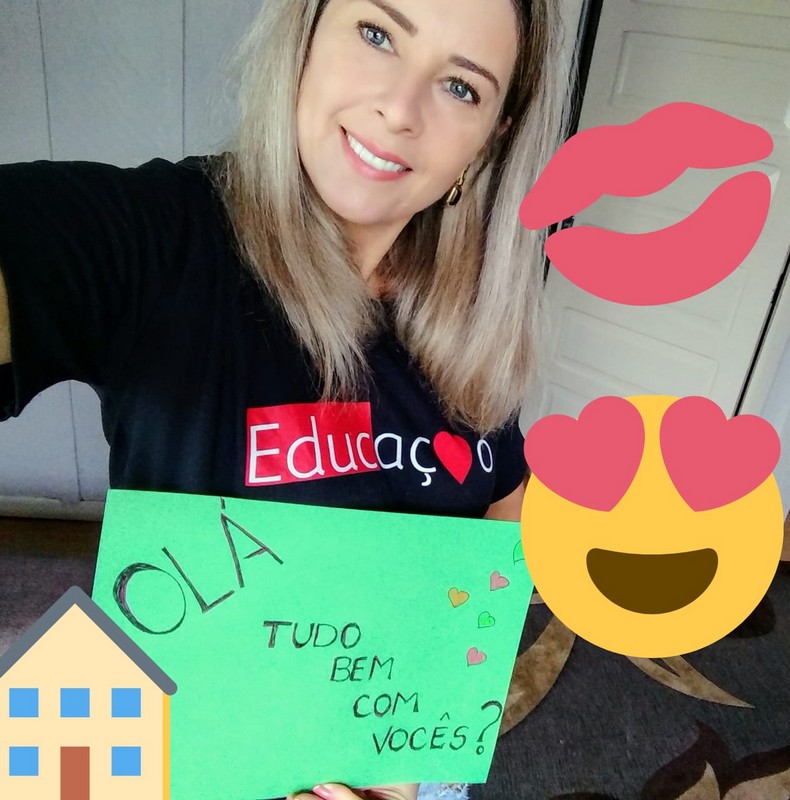 Educaç❤o
OLÁ
TUDO
BEM
COM
VOCÊS?